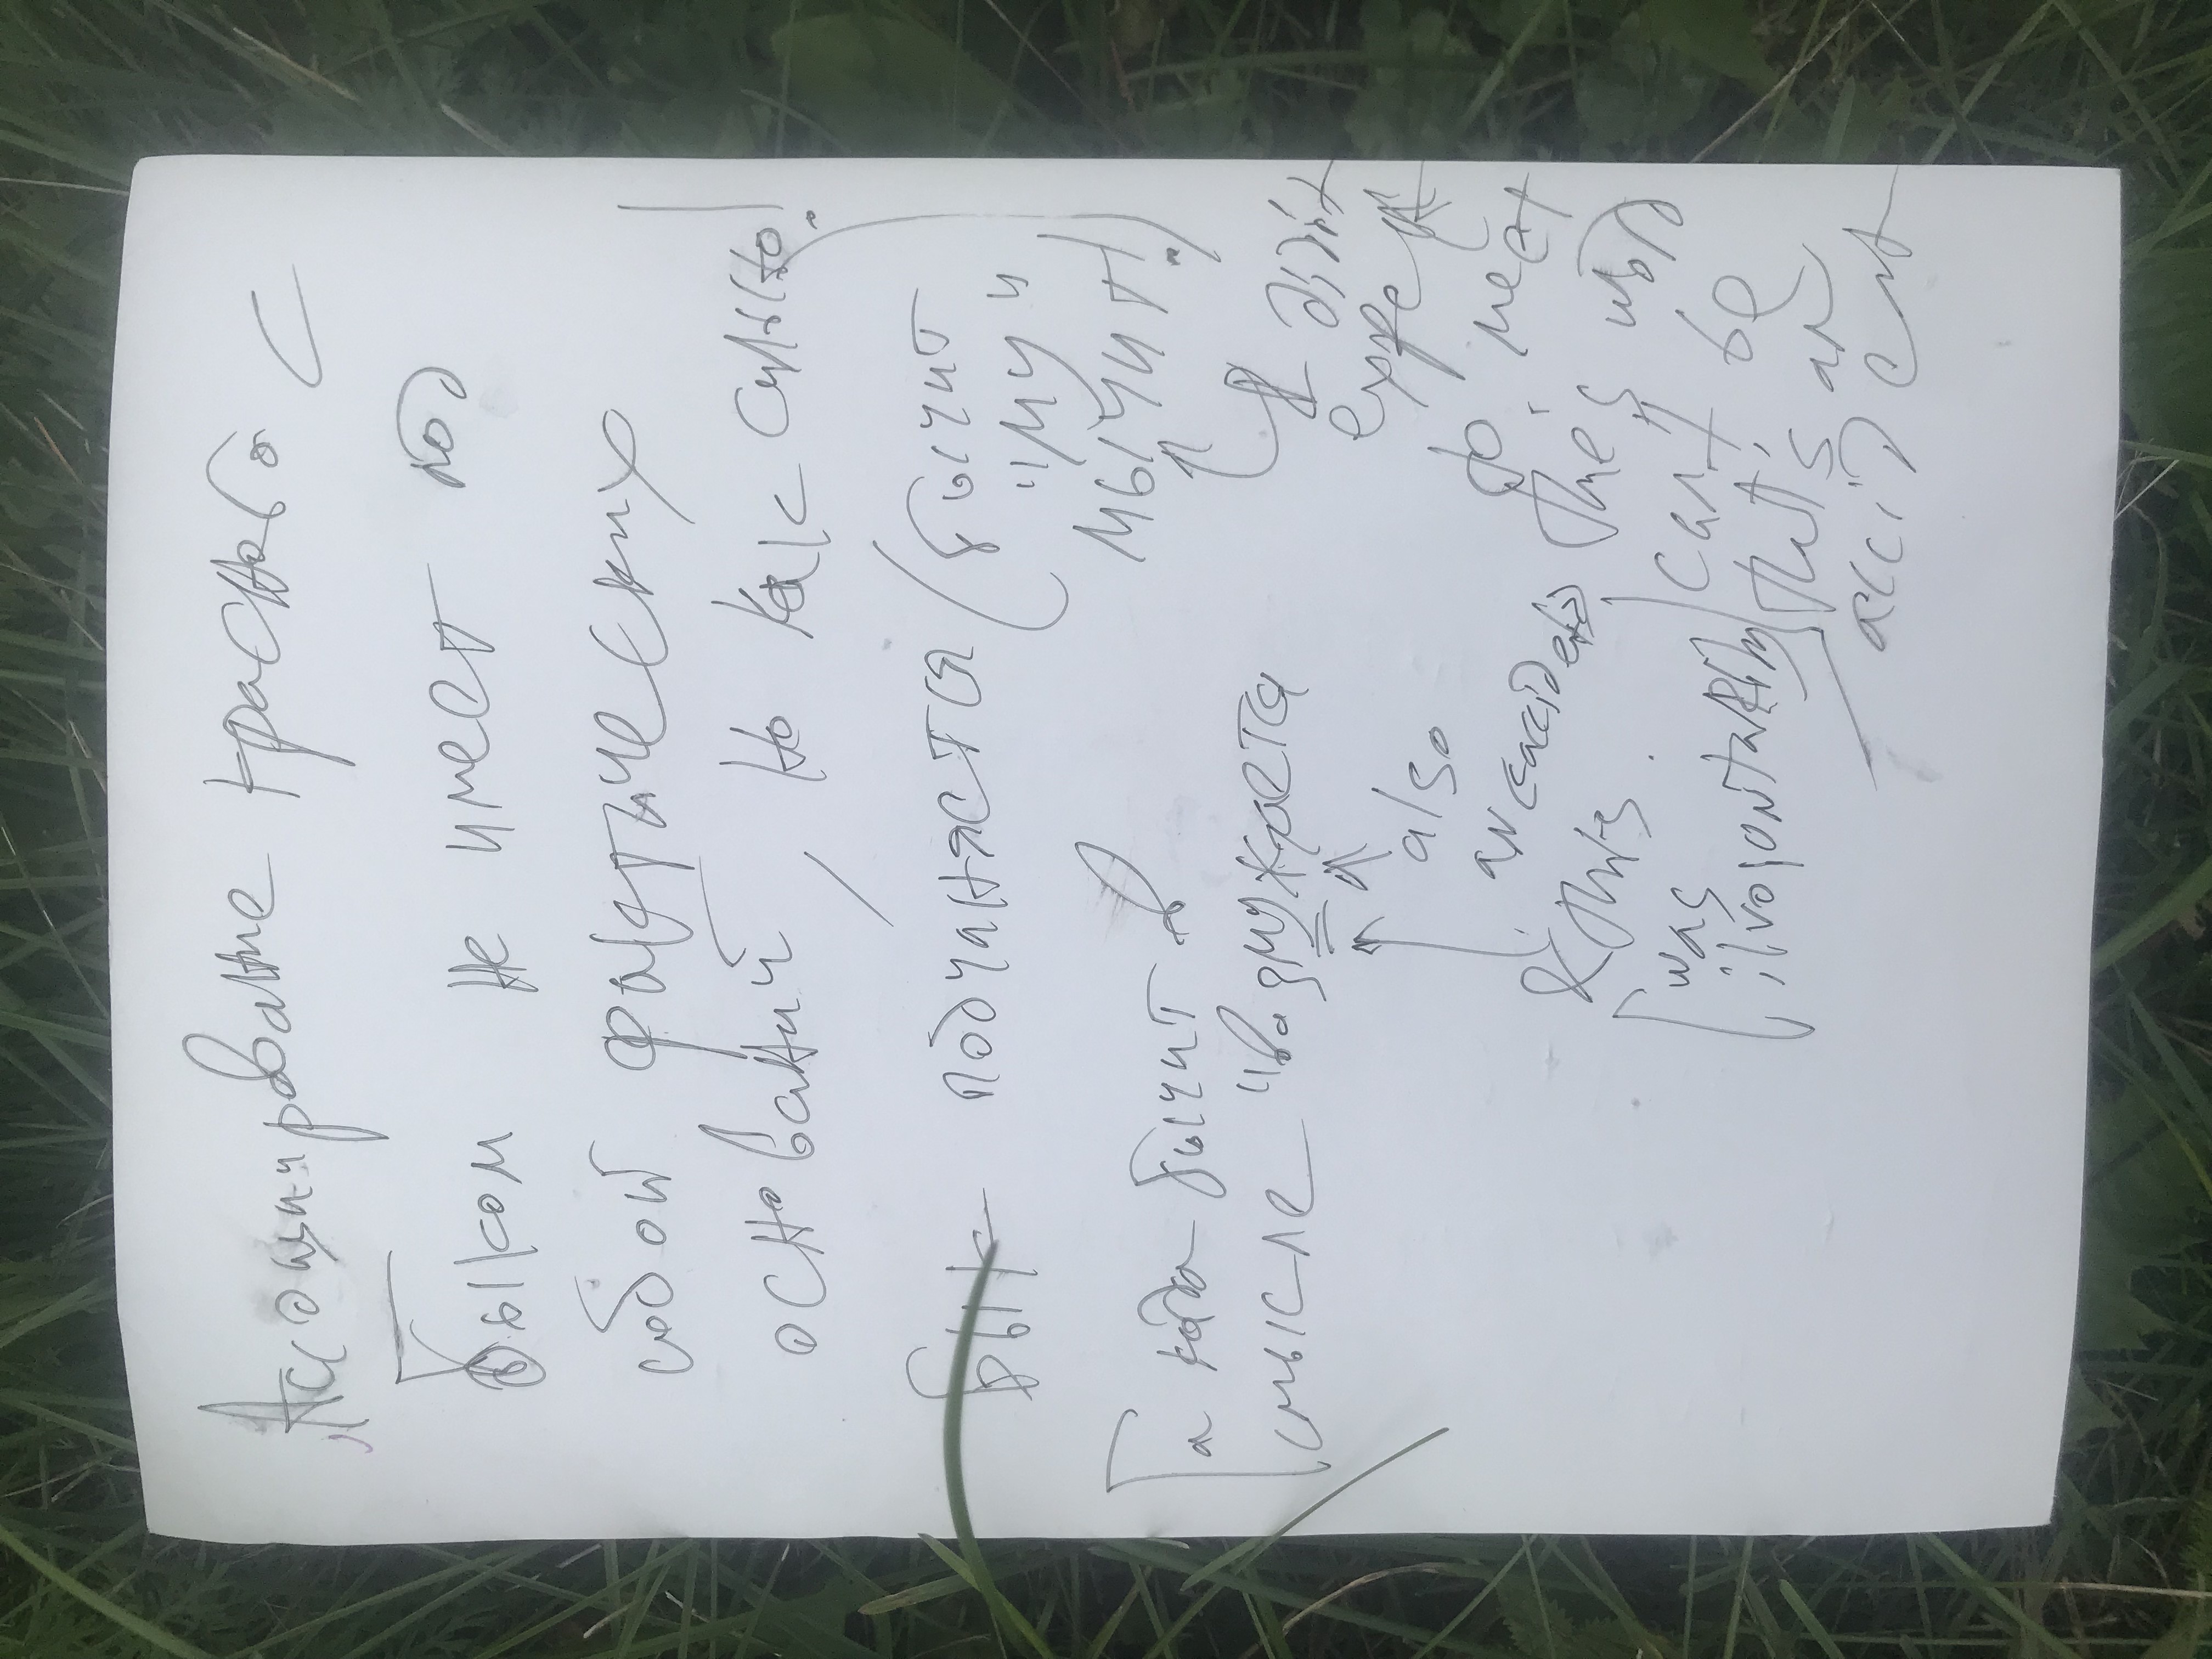 Ассоциирование красного с
быком не имеет под
собой фактических
оснований, но как сильно!
Бык подчиняется (бычит
"му"
мычит!)
[а когда бычит в
смысле "возмужается
also
an "accident"
& this
[was
I didn't
expect
to meet
this word
can't be
that's an
accident